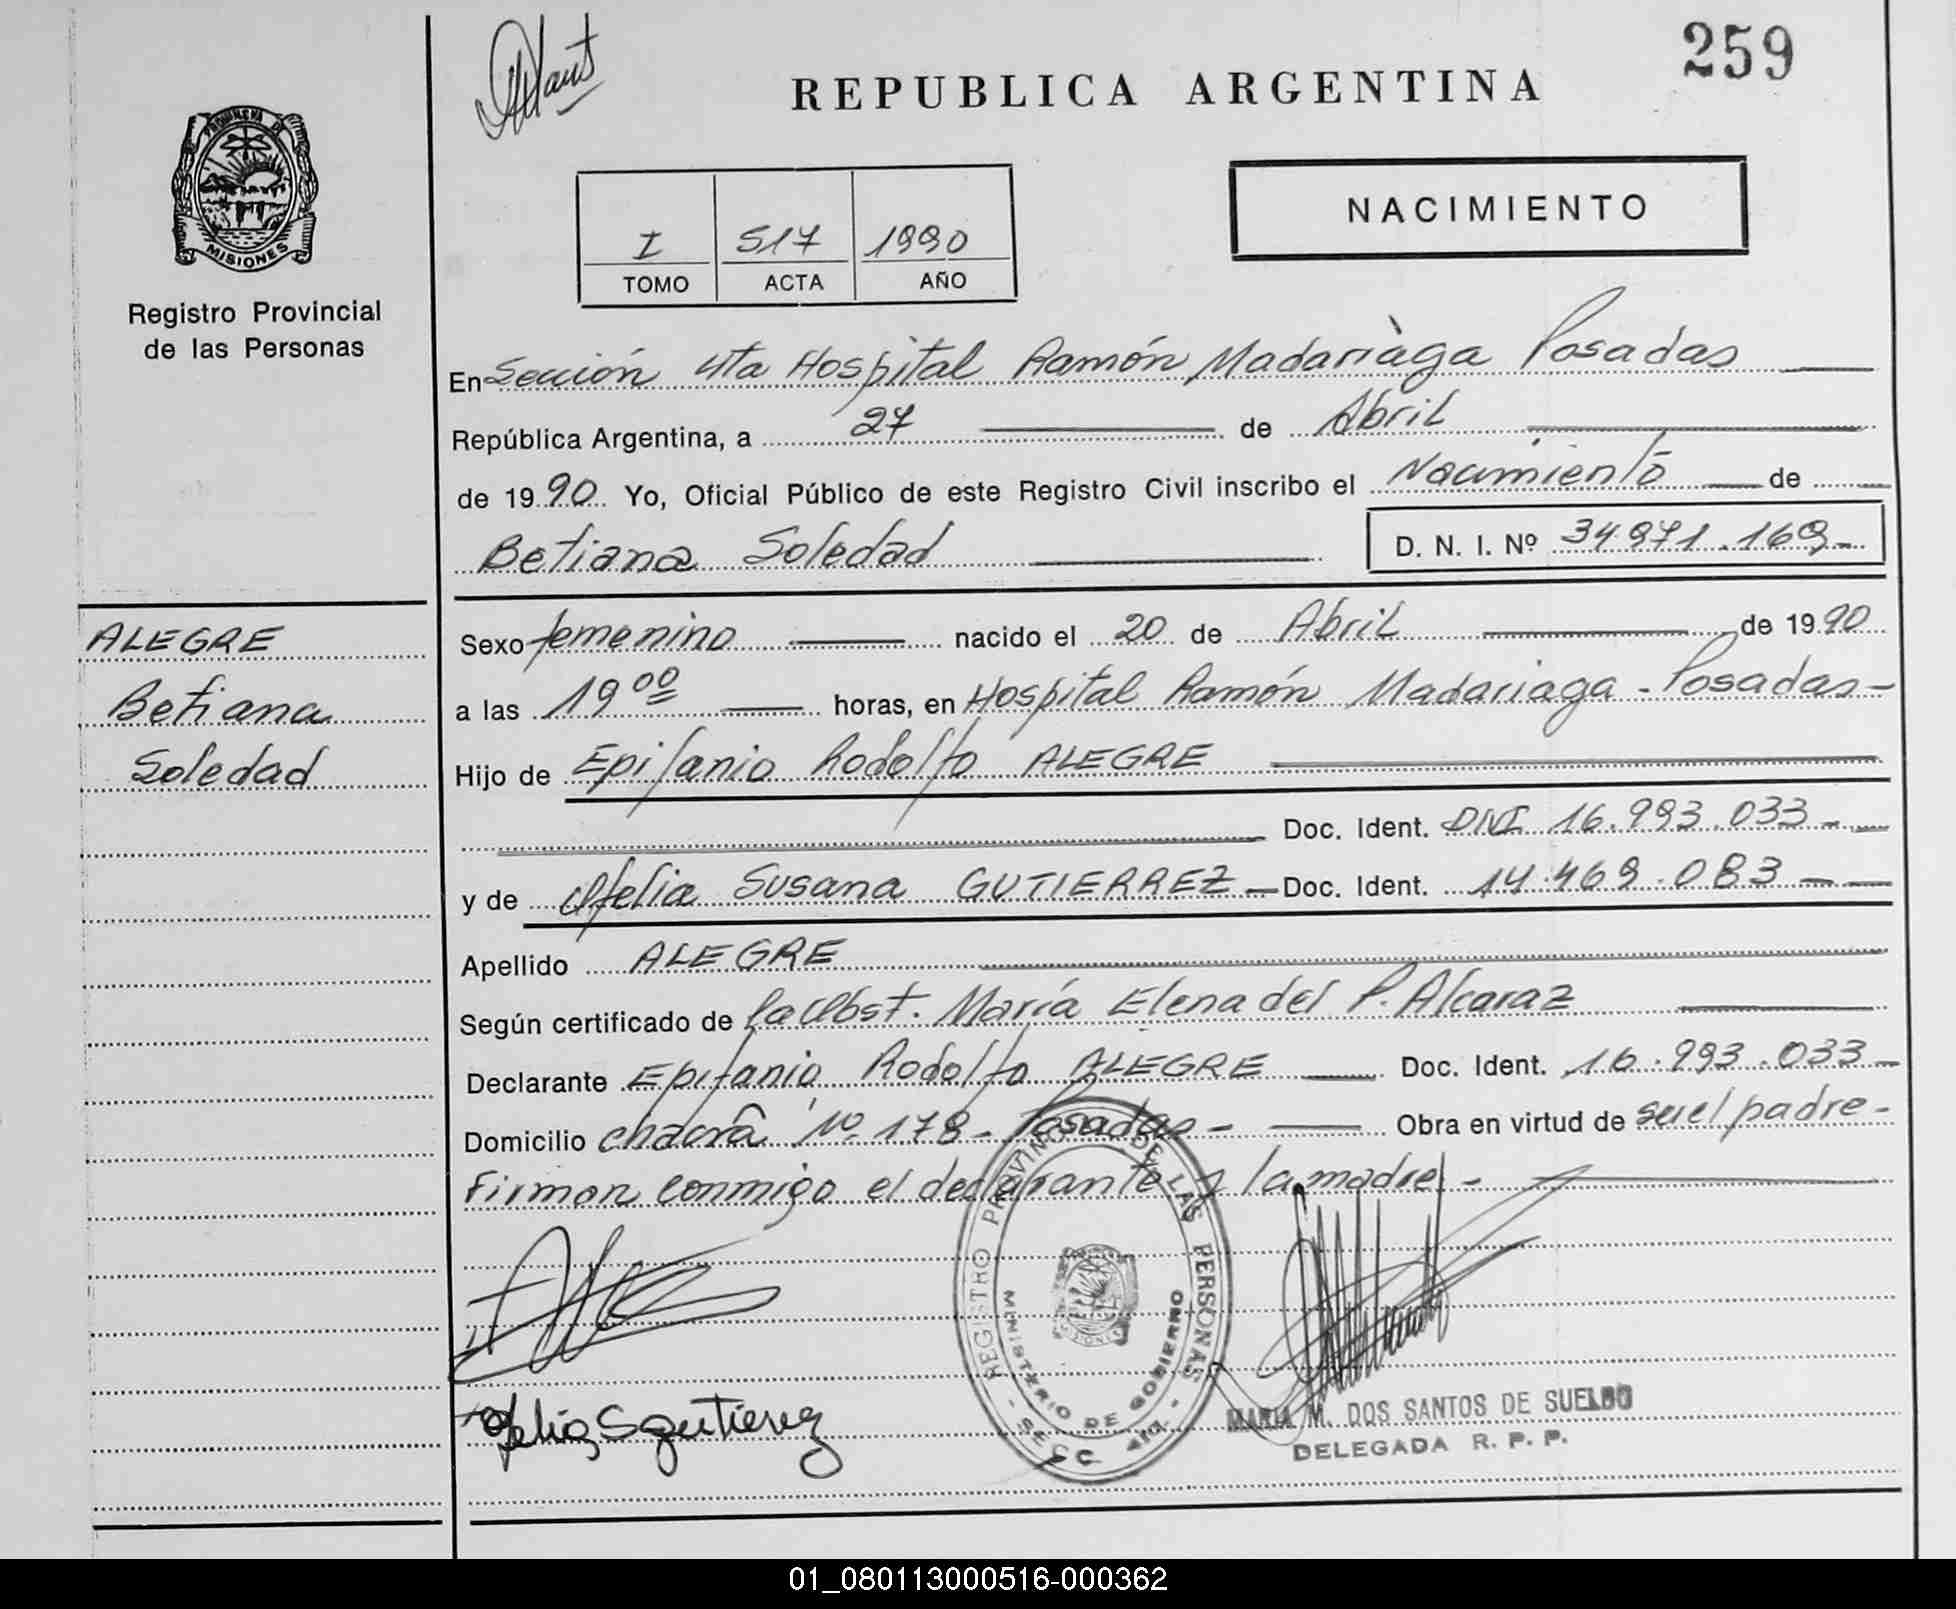 259
REPUBLICA ARGENTINA
PROVINCIA DE
MISIONES
Registro Provincial
de las Personas
NACIMIENTO
I 517 1990
TOMO ACTA AÑO
En Sección 4ta Hospital Ramón Madariaga Posadas
República Argentina, a 27 de Abril
de 1990 Yo, Oficial Público de este Registro Civil inscribo el Nacimiento de
Betiana Soledad D. N. I. Nº 34.971.169
ALEGRE
Betiana
Soledad
Sexo femenino nacido el 20 de Abril de 1990
a las 19 00 horas, en Hospital Ramón Madariaga - Posadas -
Hijo de Epifanio Rodolfo ALEGRE
Doc. Ident. DNI 16.993.033
y de Ofelia Susana GUTIERREZ Doc. Ident. 14.469.083
Apellido ALEGRE
Según certificado de la Obst. María Elena del P. Alcaraz
Declarante Epifanio Rodolfo ALEGRE Doc. Ident. 16.993.033
Domicilio chacra Nº 178 - Posadas - Obra en virtud de ser el padre -
Firman conmigo el declarante y la madre -
REGISTRO PROVINCIAL DE LAS PERSONAS
MINISTERIO DE GOBIERNO
MISIONES
- SECC. 4ta. -
Ofelia S gutierrez
MARIA M. DOS SANTOS DE SUELDO
DELEGADA R. P. P.
01_080113000516-000362